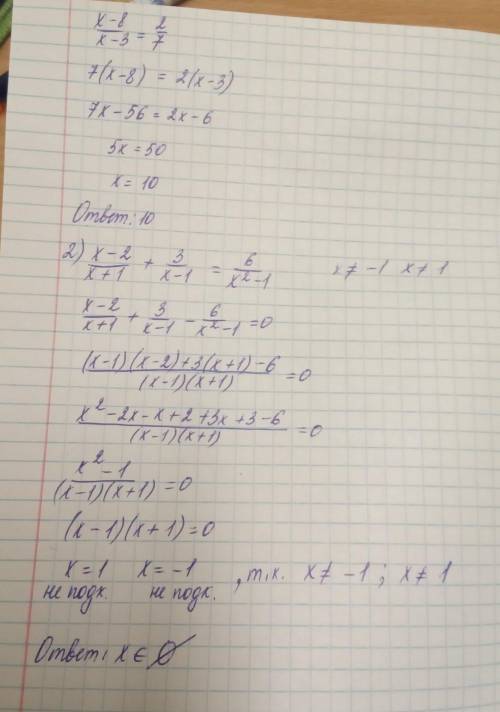 (x-8)/(x-3) = 2/7
7(x-8) = 2(x-3)
7x-56=2x-6
5x=50
x=10
Ответ: 10
2) (x-2)/(x+1) + 3/(x-1) = 6/(x²-1) x≠-1 x≠1
(x-2)/(x+1) + 3/(x-1) - 6/(x²-1) =0
((x-1)(x-2)+3(x+1)-6)/((x-1)(x+1)) =0
(x²-2x-x+2+3x+3-6)/((x-1)(x+1)) =0
(x²-1)/((x-1)(x+1)) =0
(x-1)(x+1)=0
x=1 x=-1 , т.к. x≠-1; x≠1
не подх. не подх.
Ответ: x∈∅